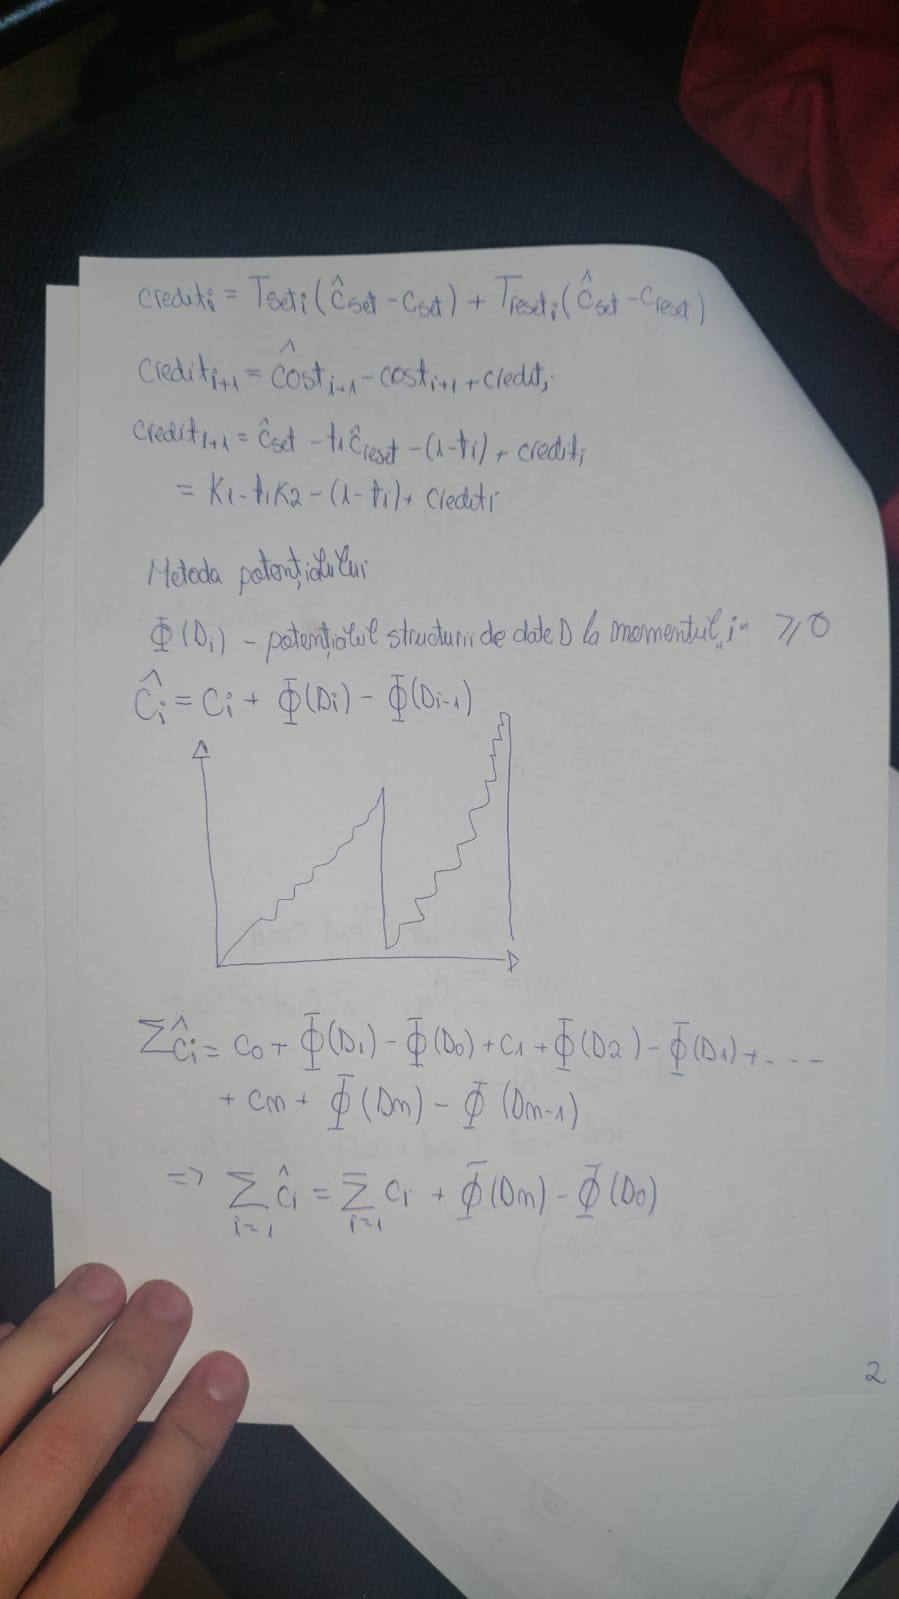 crediti = Tseti(ĉset - cset) + Treseti(ĉset - creset)
crediti+1 = côsti+1 - costi+1 + crediti
crediti+1 = ĉset - tiĉreset - (1-ti) + crediti
= K1 - tiK2 - (1-ti) + crediti
Metoda potențialului
Φ(Di) - potențialul structurii de date D la momentul „i“ ≥0
Ĉi = Ci + Φ(Di) - Φ(Di-1)
Σĉi = c0 + Φ(D1) - Φ(D0) + c1 + Φ(D2) - Φ(D1) + ----
+ cm + Φ(Dm) - Φ(Dm-1)
=> Σ ĉi = Σ ci + Φ(Dm) - Φ(D0)
i=1 i=1
2